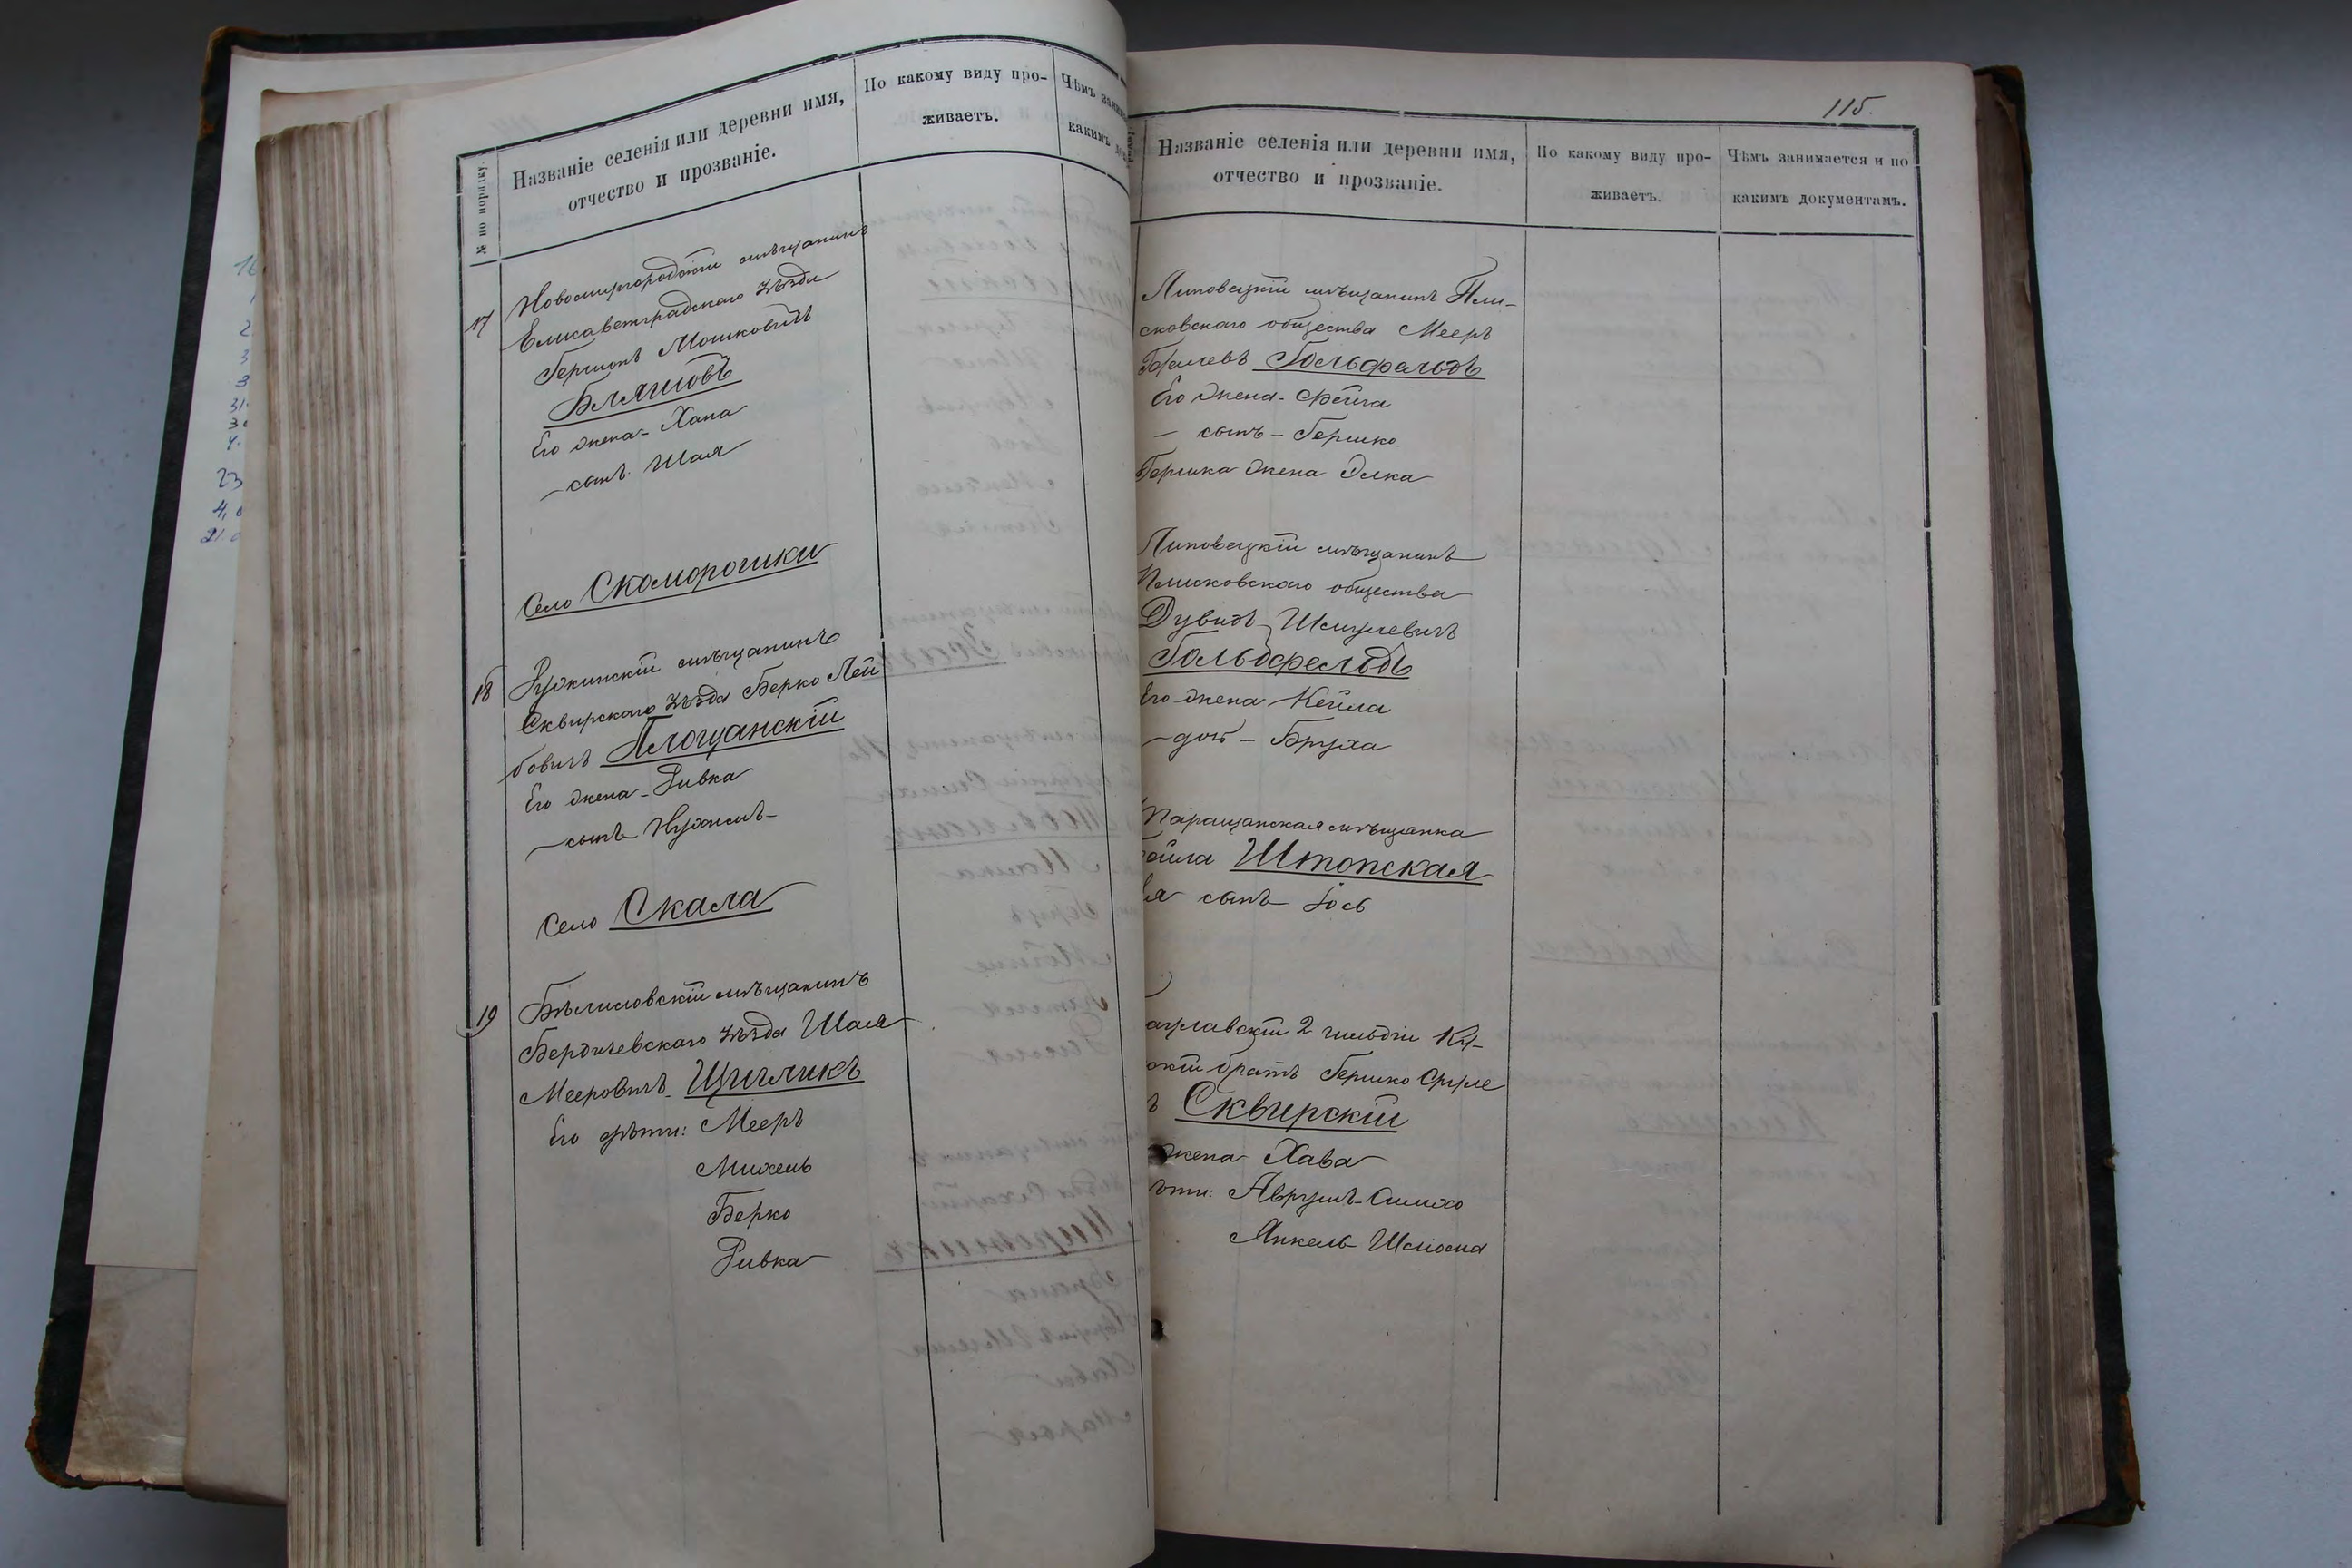 № по порядку.
Названіе селенія или деревни имя,
отчество и прозваніе.
По какому виду про-
живаетъ.
Чѣмъ
какимъ
17
Новомиргородскій мѣщанинъ
Елисаветградскаго уѣзда
Гершонъ Мошковичъ
Бляшовъ
Его жена - Хана
- сынъ Шая
Село Скоморошки
18
Ружинскій мѣщанинъ
Сквирскаго уѣзда Берко Лей
бовичъ Площанскій
Его жена - Ривка
- сынъ Нухимъ -
Село Скала
19
Бѣлиловскій мѣщанинъ
Бердичевскаго уѣзда Шая
Мееровичъ Щигликъ
Его дѣти: Мееръ
Михель
Берко
Ривка
115.
Названіе селенія или деревни имя,
отчество и прозваніе.
По какому виду про-
живаетъ.
Чѣмъ занимается и по
какимъ документамъ.
Липовецкій мѣщанинъ Пли-
сковскаго общества Мееръ
Гольдфельдъ
Его жена - Фейга
- сынъ - Гершко
Гершка жена Элка
Липовецкій мѣщанинъ
Плисковскаго общества
Дувидъ Шмулевичъ
Гольдфельдъ
Его жена Кейла
- дочь - Бруха
Таращанская мѣщанка
Штопская
сынъ Іось
2 гильдіи Ку-
братъ Гершко Сруле
ъ Сквирскій
жена Хава
ѣти: Аврумъ - Симхо
Янкель Шлиома